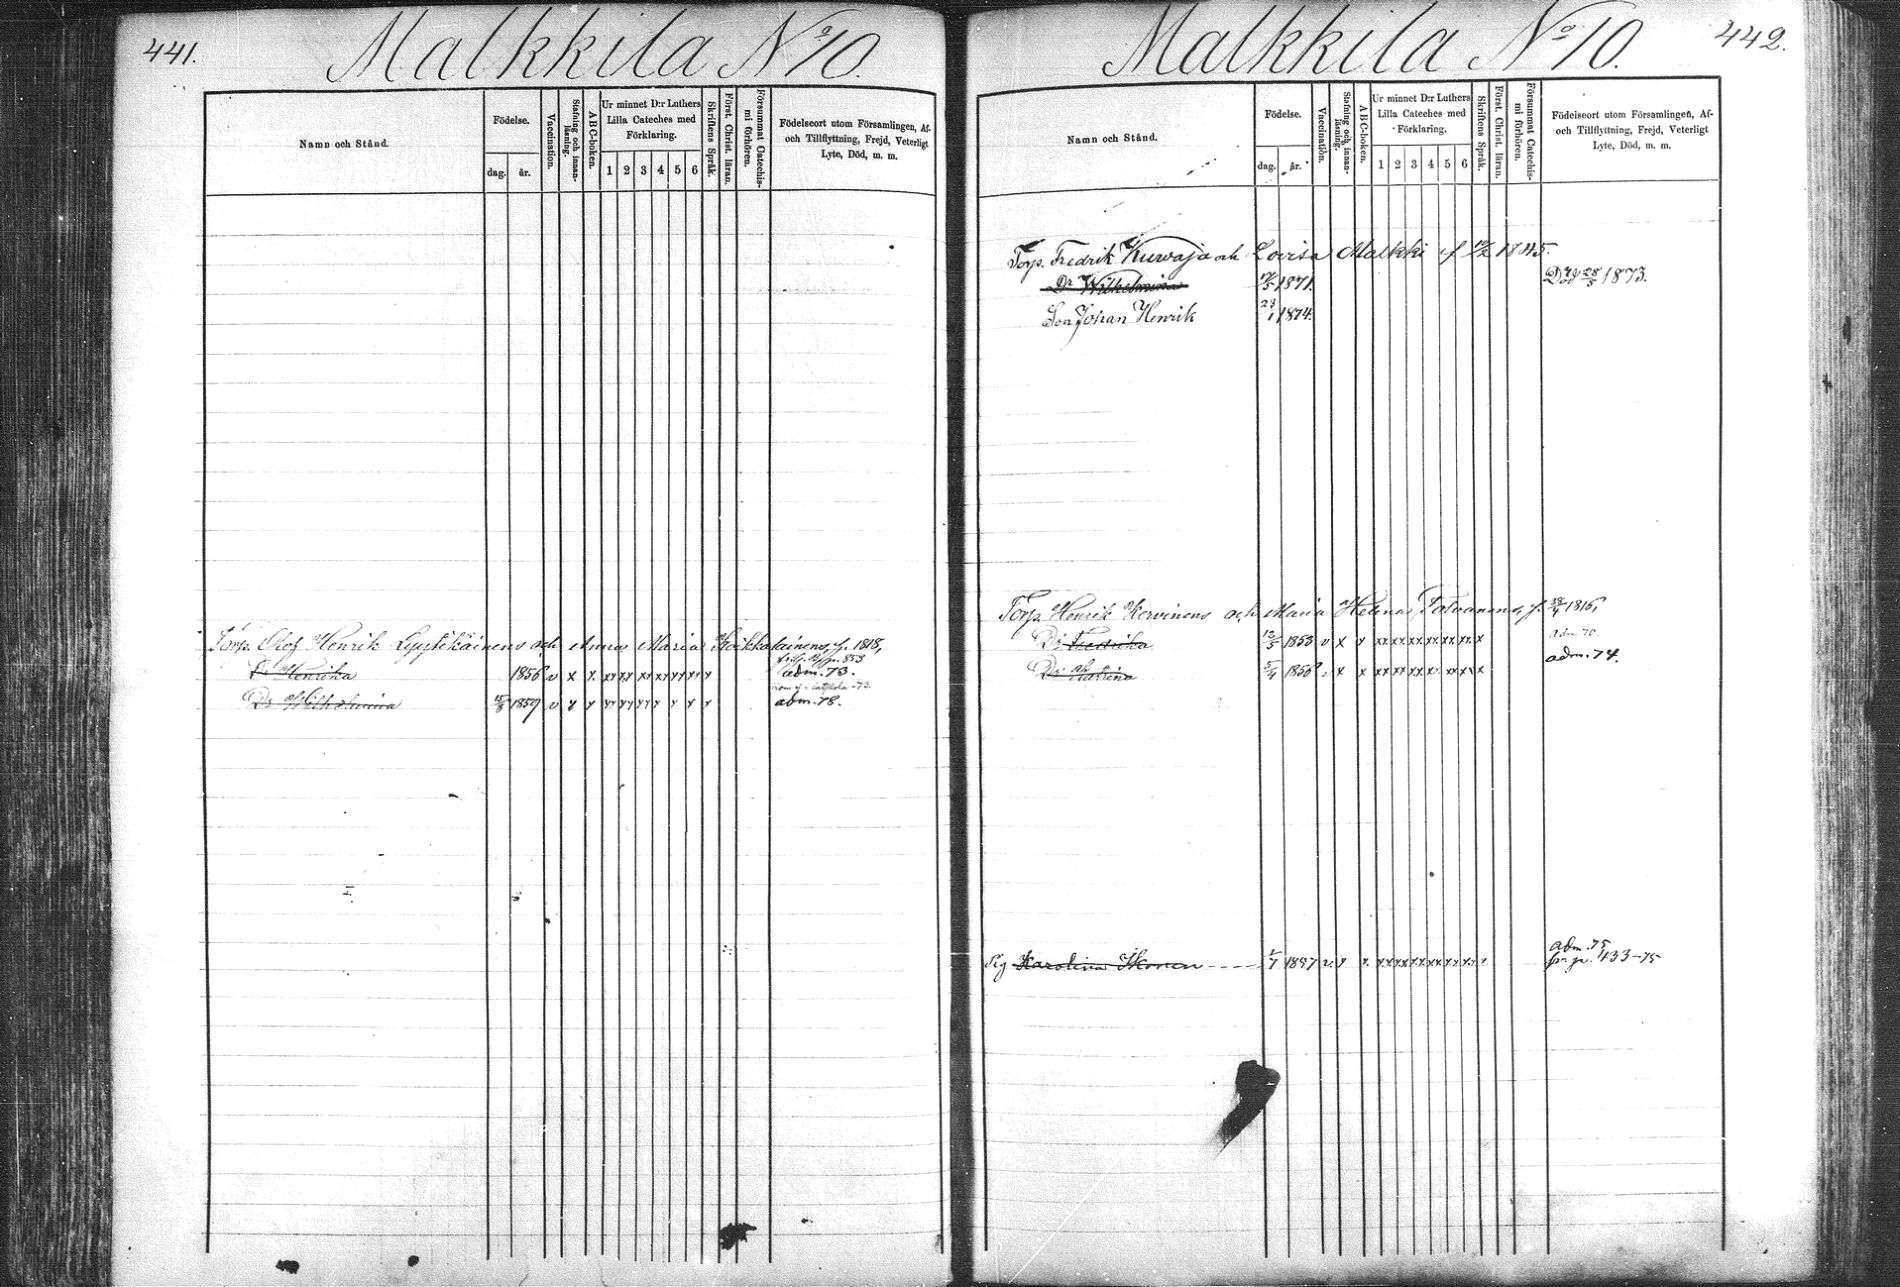 441.
Malkkila No 10.
Namn och Stånd.
Födelse.
dag. år.
Vaccination.
Stafning och innanläsning.
ABC-boken.
Ur minnet D:r Luthers Lilla Cateches med Förklaring.
1 2 3 4 5 6
Skriftens Språk.
Först. Christ. läran.
Försummat Catechismi förhören.
Födelseort utom Församlingen, Af- och Tillflyttning, Frejd, Veterligt Lyte, Död, m. m.
Torp. Olof Henrik Lyytikäinens och Anna Maria Koikkalainens, f. 1818,
Dr Henrika 1856 v x x xx xx xx xx xx xx x adm. 73.
Dr Wilhelmina 15/8 1859 v x x xx xx xx x x x x adm. 78.
442.
Malkkila No 10.
Namn och Stånd.
Födelse.
dag. år.
Vaccination.
Stafning och innanläsning.
ABC-boken.
Ur minnet D:r Luthers Lilla Cateches med Förklaring.
1 2 3 4 5 6
Skriftens Språk.
Först. Christ. läran.
Försummat Catechismi förhören.
Födelseort utom Församlingen, Af- och Tillflyttning, Frejd, Veterligt Lyte, Död, m. m.
Torp. Fredrik Kurvaja och Lovisa Malkki f 1845.
Dr Wilhelmina 1871. Död 28/5 1873.
Son Johan Henrik 23/1 1874.
Torp. Henrik Kervinens och Maria Helena Tolvanens, f. 1816,
Dr Fredrika 12/5 1853 v x x xx xx xx xx xx xx x adm. 70.
Dr Katrina 5/4 1856 v x x xx xx xx xx xx x adm. 74.
Karolina Ikonen 1/7 1857 v x x xx xx xx xx xx xx x adm. 75
433-75